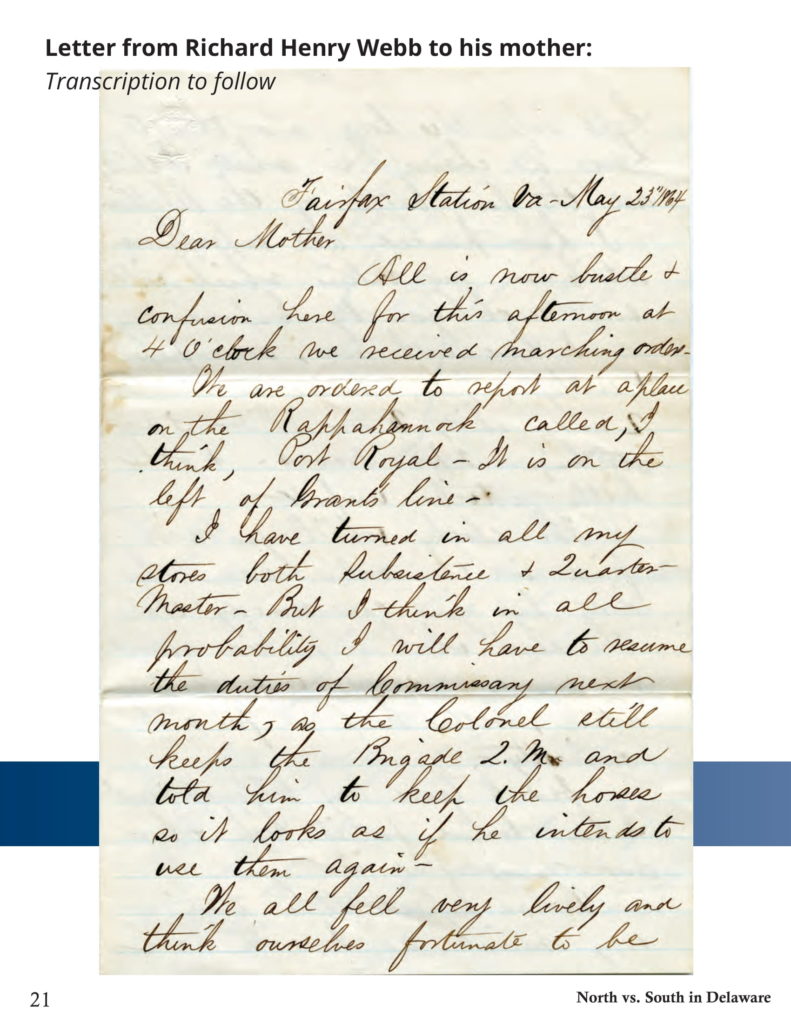 Letter from Richard Henry Webb to his mother:
Transcription to follow
Fairfax Station Va - May 23" 1864
Dear Mother
All is now bustle &
confusion here for this afternoon at
4 O'clock we received marching orders-
We are ordered to report at a place
on the Rappahannock called, I
think, Port Royal - It is on the
left of Grants line -
I have turned in all my
stores both Subsistence & Quarter-
Master - But I think in all
probability I will have to resume
the duties of Commissary next
month, as the Colonel still
keeps the Brigade Q. M. and
told him to keep the horses
so it looks as if he intends to
use them again -
We all fell very lively and
think ourselves fortunate to be
21
North vs. South in Delaware